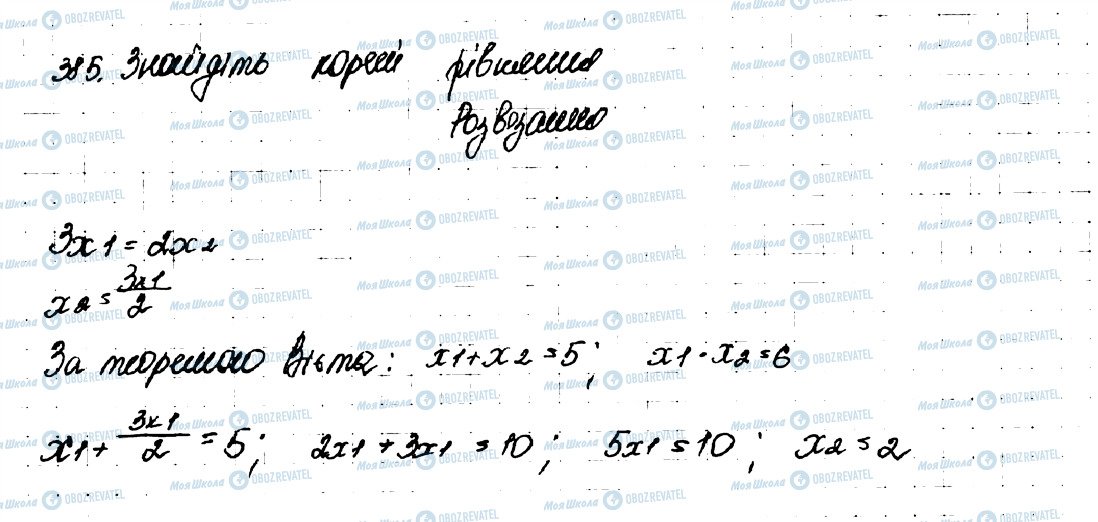 385. Знайдіть корені рівняння
Розвозання
3x1 = 2x2
x2 = 3x1/2
За теоремою Вієта: x1 + x2 = 5; x1 · x2 = 6
x1 + 3x1/2 = 5; 2x1 + 3x1 = 10; 5x1 = 10; x2 = 2
МояШкола OBOZREVATEL